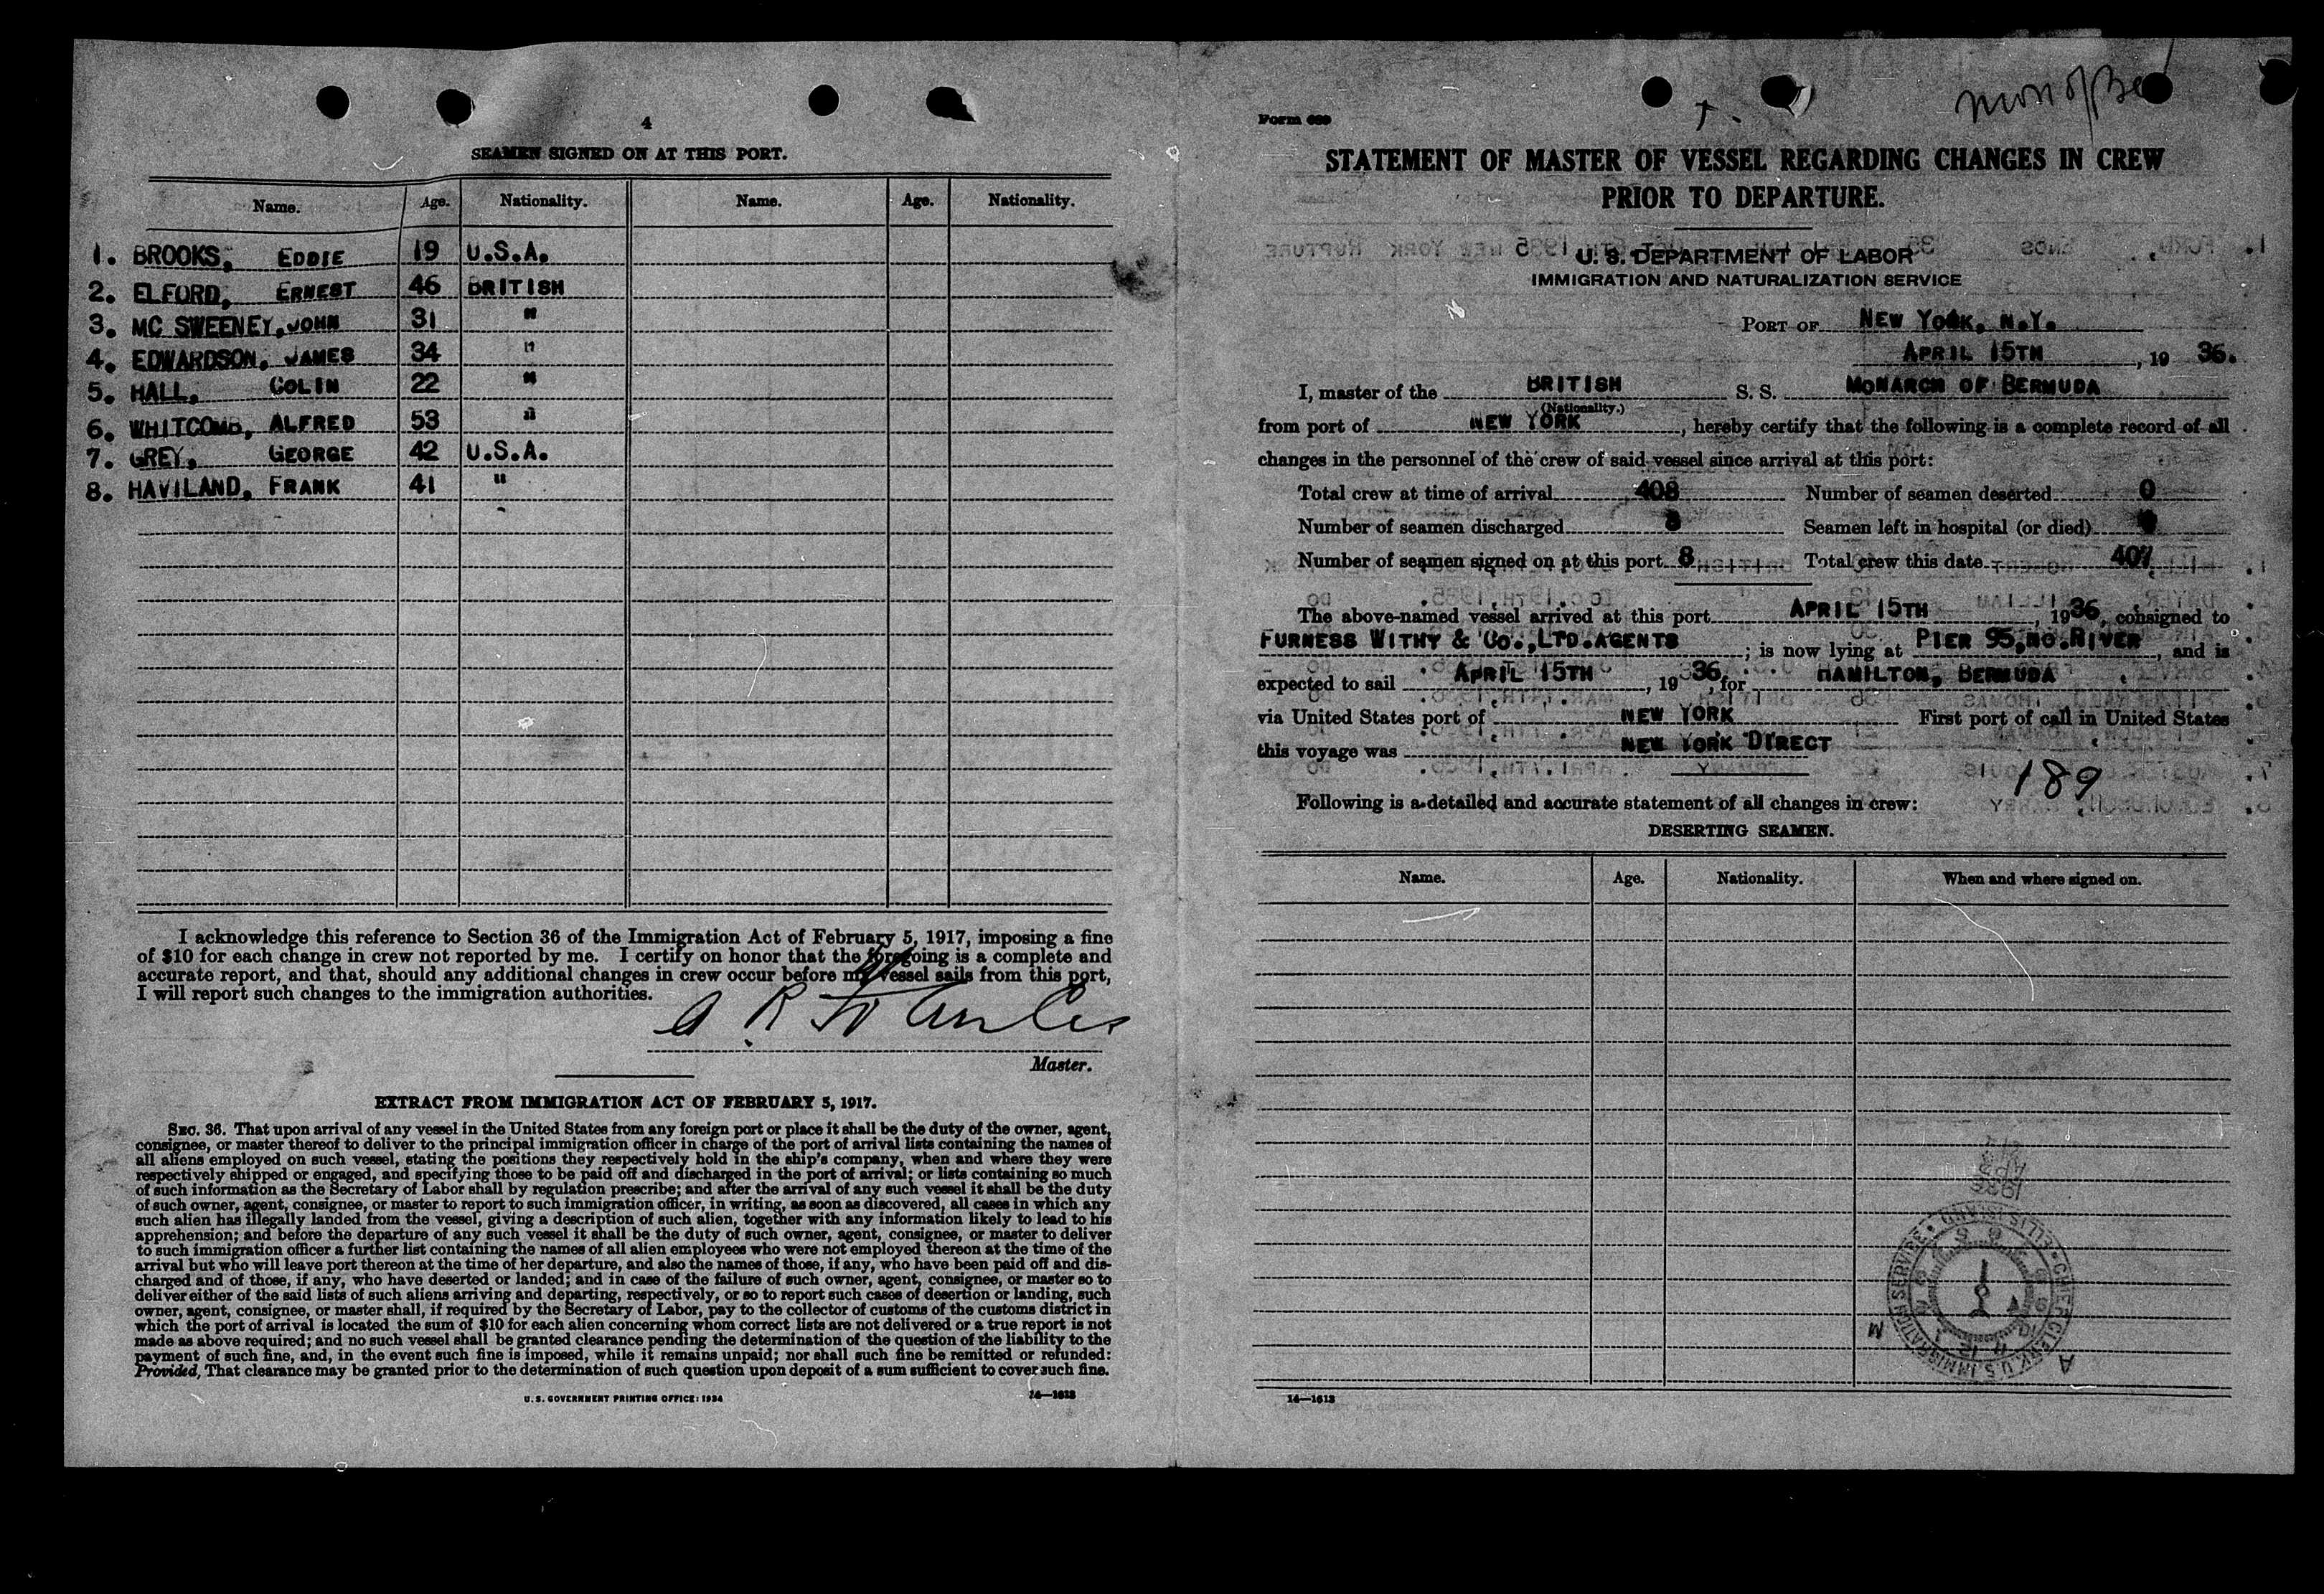 4
SEAMEN SIGNED ON AT THIS PORT.
Name. Age. Nationality. Name. Age. Nationality.
1. BROOKS, EDDIE 19 U.S.A.
2. ELFORD, ERNEST 46 BRITISH
3. MC SWEENEY, JOHN 31 "
4. EDWARDSON, JAMES 34 "
5. HALL, COLIN 22 "
6. WHITCOMB, ALFRED 53 "
7. GREY, GEORGE 42 U.S.A.
8. HAVILAND, FRANK 41 "
I acknowledge this reference to Section 36 of the Immigration Act of February 5, 1917, imposing a fine
of $10 for each change in crew not reported by me. I certify on honor that the foregoing is a complete and
accurate report, and that, should any additional changes in crew occur before my vessel sails from this port,
I will report such changes to the immigration authorities.
Master.
EXTRACT FROM IMMIGRATION ACT OF FEBRUARY 5, 1917.
SEC. 36. That upon arrival of any vessel in the United States from any foreign port or place it shall be the duty of the owner, agent,
consignee, or master thereof to deliver to the principal immigration officer in charge of the port of arrival lists containing the names of
all aliens employed on such vessel, stating the positions they respectively hold in the ship's company, when and where they were
respectively shipped or engaged, and specifying those to be paid off and discharged in the port of arrival; or lists containing so much
of such information as the Secretary of Labor shall by regulation prescribe; and after the arrival of any such vessel it shall be the duty
of such owner, agent, consignee, or master to report to such immigration officer, in writing, as soon as discovered, all cases in which any
such alien has illegally landed from the vessel, giving a description of such alien, together with any information likely to lead to his
apprehension; and before the departure of any such vessel it shall be the duty of such owner, agent, consignee, or master to deliver
to such immigration officer a further list containing the names of all alien employees who were not employed thereon at the time of the
arrival but who will leave port thereon at the time of her departure, and also the names of those, if any, who have been paid off and dis-
charged and of those, if any, who have deserted or landed; and in case of the failure of such owner, agent, consignee, or master so to
deliver either of the said lists of such aliens arriving and departing, respectively, or so to report such cases of desertion or landing, such
owner, agent, consignee, or master shall, if required by the Secretary of Labor, pay to the collector of customs of the customs district in
which the port of arrival is located the sum of $10 for each alien concerning whom correct lists are not delivered or a true report is not
made as above required; and no such vessel shall be granted clearance pending the determination of the question of the liability to the
payment of such fine, and, in the event such fine is imposed, while it remains unpaid; nor shall such fine be remitted or refunded:
Provided, That clearance may be granted prior to the determination of such question upon deposit of a sum sufficient to cover such fine.
U. S. GOVERNMENT PRINTING OFFICE: 1934 14—1613
Form 689
Mon of Be
STATEMENT OF MASTER OF VESSEL REGARDING CHANGES IN CREW
PRIOR TO DEPARTURE.
U. S. DEPARTMENT OF LABOR
IMMIGRATION AND NATURALIZATION SERVICE
PORT OF NEW YORK, N.Y.
APRIL 15TH, 19 36.
I, master of the BRITISH S. S. MONARCH OF BERMUDA
(Nationality.)
from port of NEW YORK, hereby certify that the following is a complete record of all
changes in the personnel of the crew of said vessel since arrival at this port:
Total crew at time of arrival 408 Number of seamen deserted 0
Number of seamen discharged 8 Seamen left in hospital (or died)
Number of seamen signed on at this port 8 Total crew this date 407
The above-named vessel arrived at this port APRIL 15TH, 1936, consigned to
FURNESS WITHY & CO., LTD. AGENTS; is now lying at PIER 95, NO. RIVER, and is
expected to sail APRIL 15TH, 19 36, for HAMILTON, BERMUDA
via United States port of NEW YORK First port of call in United States
this voyage was NEW YORK DIRECT
189
Following is a detailed and accurate statement of all changes in crew:
DESERTING SEAMEN.
Name. Age. Nationality. When and where signed on.
CHIEF CLERK, U.S. IMMIGRATION SERVICE • ELLIS ISLAND •
14—1613